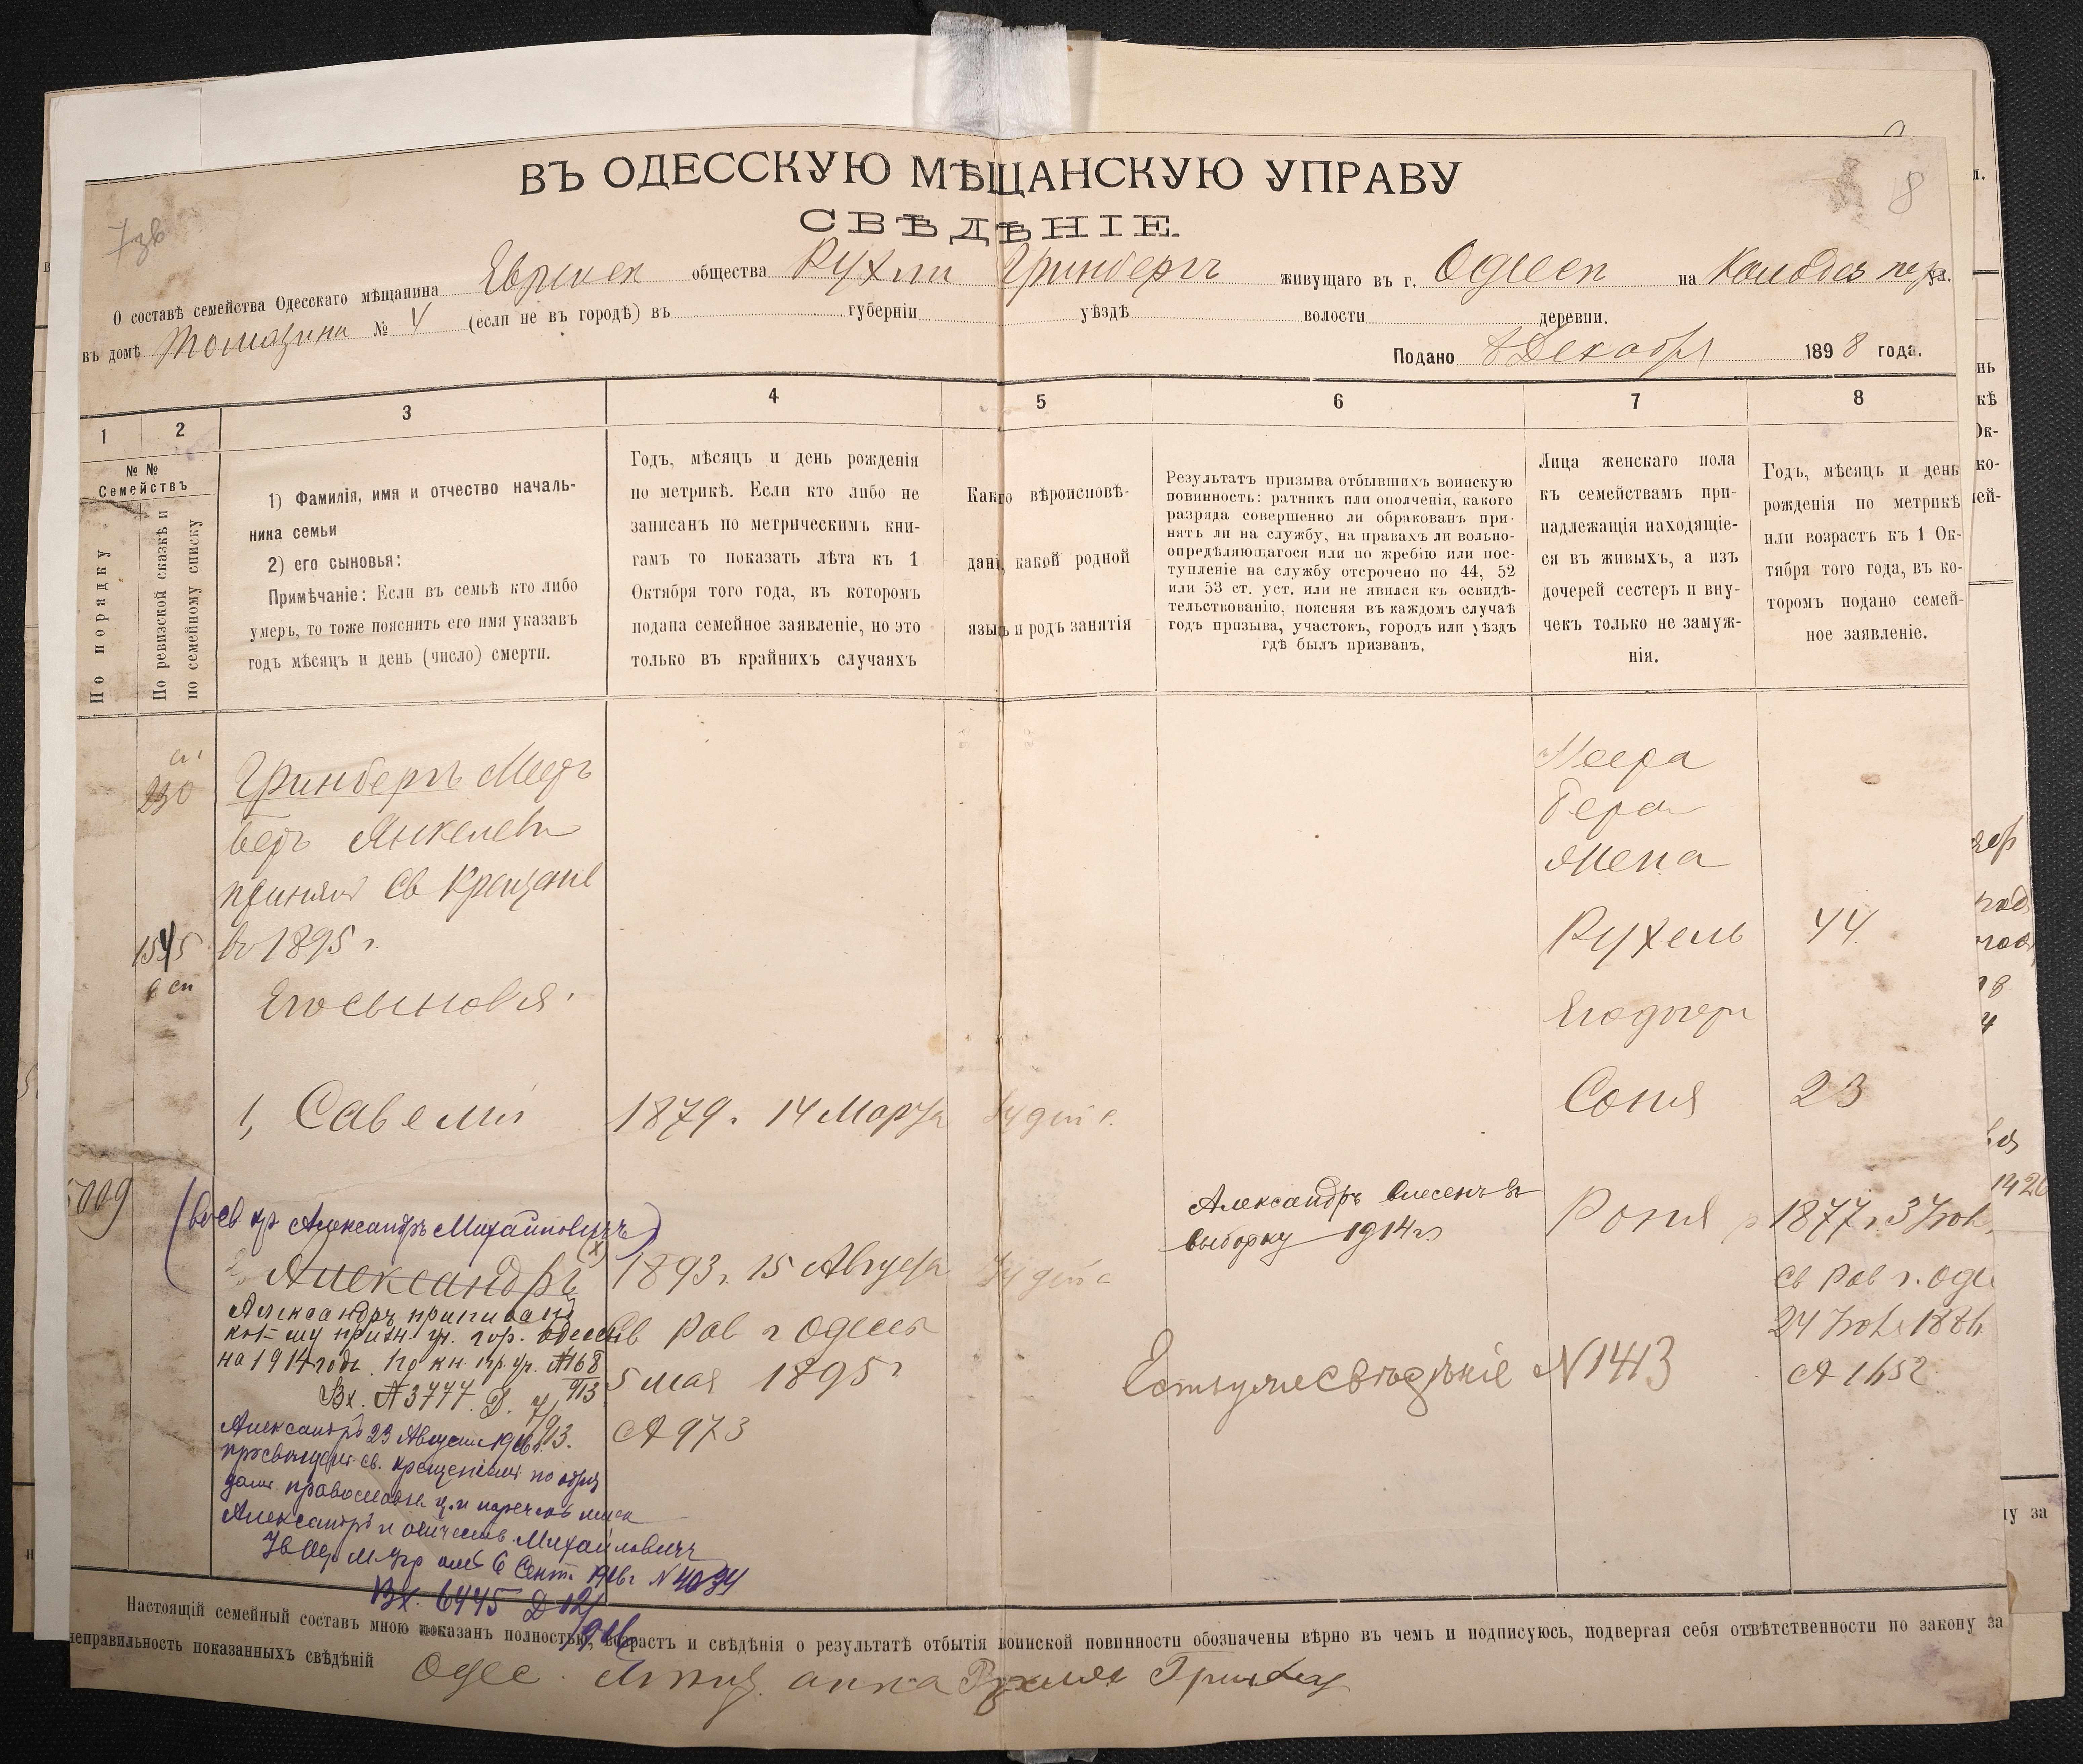 8
ВЪ ОДЕССКУЮ МѢЩАНСКУЮ УПРАВУ
СВѢДѢНІЕ
О составѣ семейства Одесскаго мѣщанина Еврейск общества Рухли Гринбергъ живущаго въ г. Одессе на Колодез пер ул.
въ домѣ Томазини № 4 (если не въ городѣ) въ губерніи уѣздѣ волости деревни.
Подано 8 Декабря 1898 года.
1 2 3 4 5 6 7 8
№ № Семействъ
По порядку
По ревизской сказкѣ и по семейному списку
1) Фамилія, имя и отчество началь-
ника семьи
2) его сыновья:
Примѣчаніе: Если въ семьѣ кто либо
умеръ, то тоже пояснить его имя указавъ
годъ мѣсяцъ и день (число) смерти.
Годъ, мѣсяцъ и день рожденія
по метрикѣ. Если кто либо не
записанъ по метрическимъ кни-
гамъ то показать лѣта къ 1
Октября того года, въ которомъ
подана семейное заявленіе, но это
только въ крайнихъ случаяхъ
Какого вѣроисповѣ-
данія, какой родной
языкъ и родъ занятія
Результатъ призыва отбывшихъ воинскую
повинность: ратникъ или ополченія, какого
разряда совершенно ли обракованъ при-
нятъ ли на службу, на правахъ ли вольно-
опредѣляющагося или по жребію или пос-
тупленіе на службу отсрочено по 44, 52
или 53 ст. уст. или не явился къ освидѣ-
тельствованію, поясняя въ каждомъ случаѣ
годъ призыва, участокъ, городъ или уѣздъ
гдѣ былъ призванъ.
Лица женскаго пола
къ семействамъ при-
надлежащія находящіе-
ся въ живыхъ, а изъ
дочерей сестеръ и вну-
чекъ только не замуж-
нія.
Годъ, мѣсяцъ и день
рожденія по метрикѣ
или возрастъ къ 1 Ок-
тября того года, въ ко-
торомъ подано семей-
ное заявленіе.
230
Гринбергъ Меер
Беръ Янкелев
принял Св Крещение
1545 в 1895 г.
6 сп
Его сыновья
1, Савелий 1879 г. 14 Марта Иудей
(во св кр Александръ Михайловичъ)
2, Александръ 1893 г. 15 Августа
Св Рав г Одессы
5 мая 1895 г
№ 973
Александръ приписанъ
къ призн. уч. гор. Одессы
на 1914 годъ по кн. пр. уч. №168
Вх. №3777. Д. 7/913.
Александръ 23 Августа 1916 г.
просвѣщен св. крещеніемъ по обряду
православн ц. и нареченъ имен
Александръ и отчеств Михайловичъ
6 Сент. 1916 г №4034
Вх. 6445 Д 12/916
Александръ внесенъ въ
выборку 1914 г
Есть уже свѣдѣніе №1413
Меера
Бера
Жена
Рухель 44
Его дочери
Соня 23
Роня 1877 г. 3 Нояб
Св Рав г. Оде
24 Нояб 1886
№ 1652
Настоящій семейный составъ мною показанъ полностью, возрастъ и свѣдѣнія о результатѣ отбытія воинской повинности обозначены вѣрно въ чемъ и подписуюсь, подвергая себя отвѣтственности по закону за
неправильность показанныхъ свѣдѣній
Одес. Рухля Гринберг